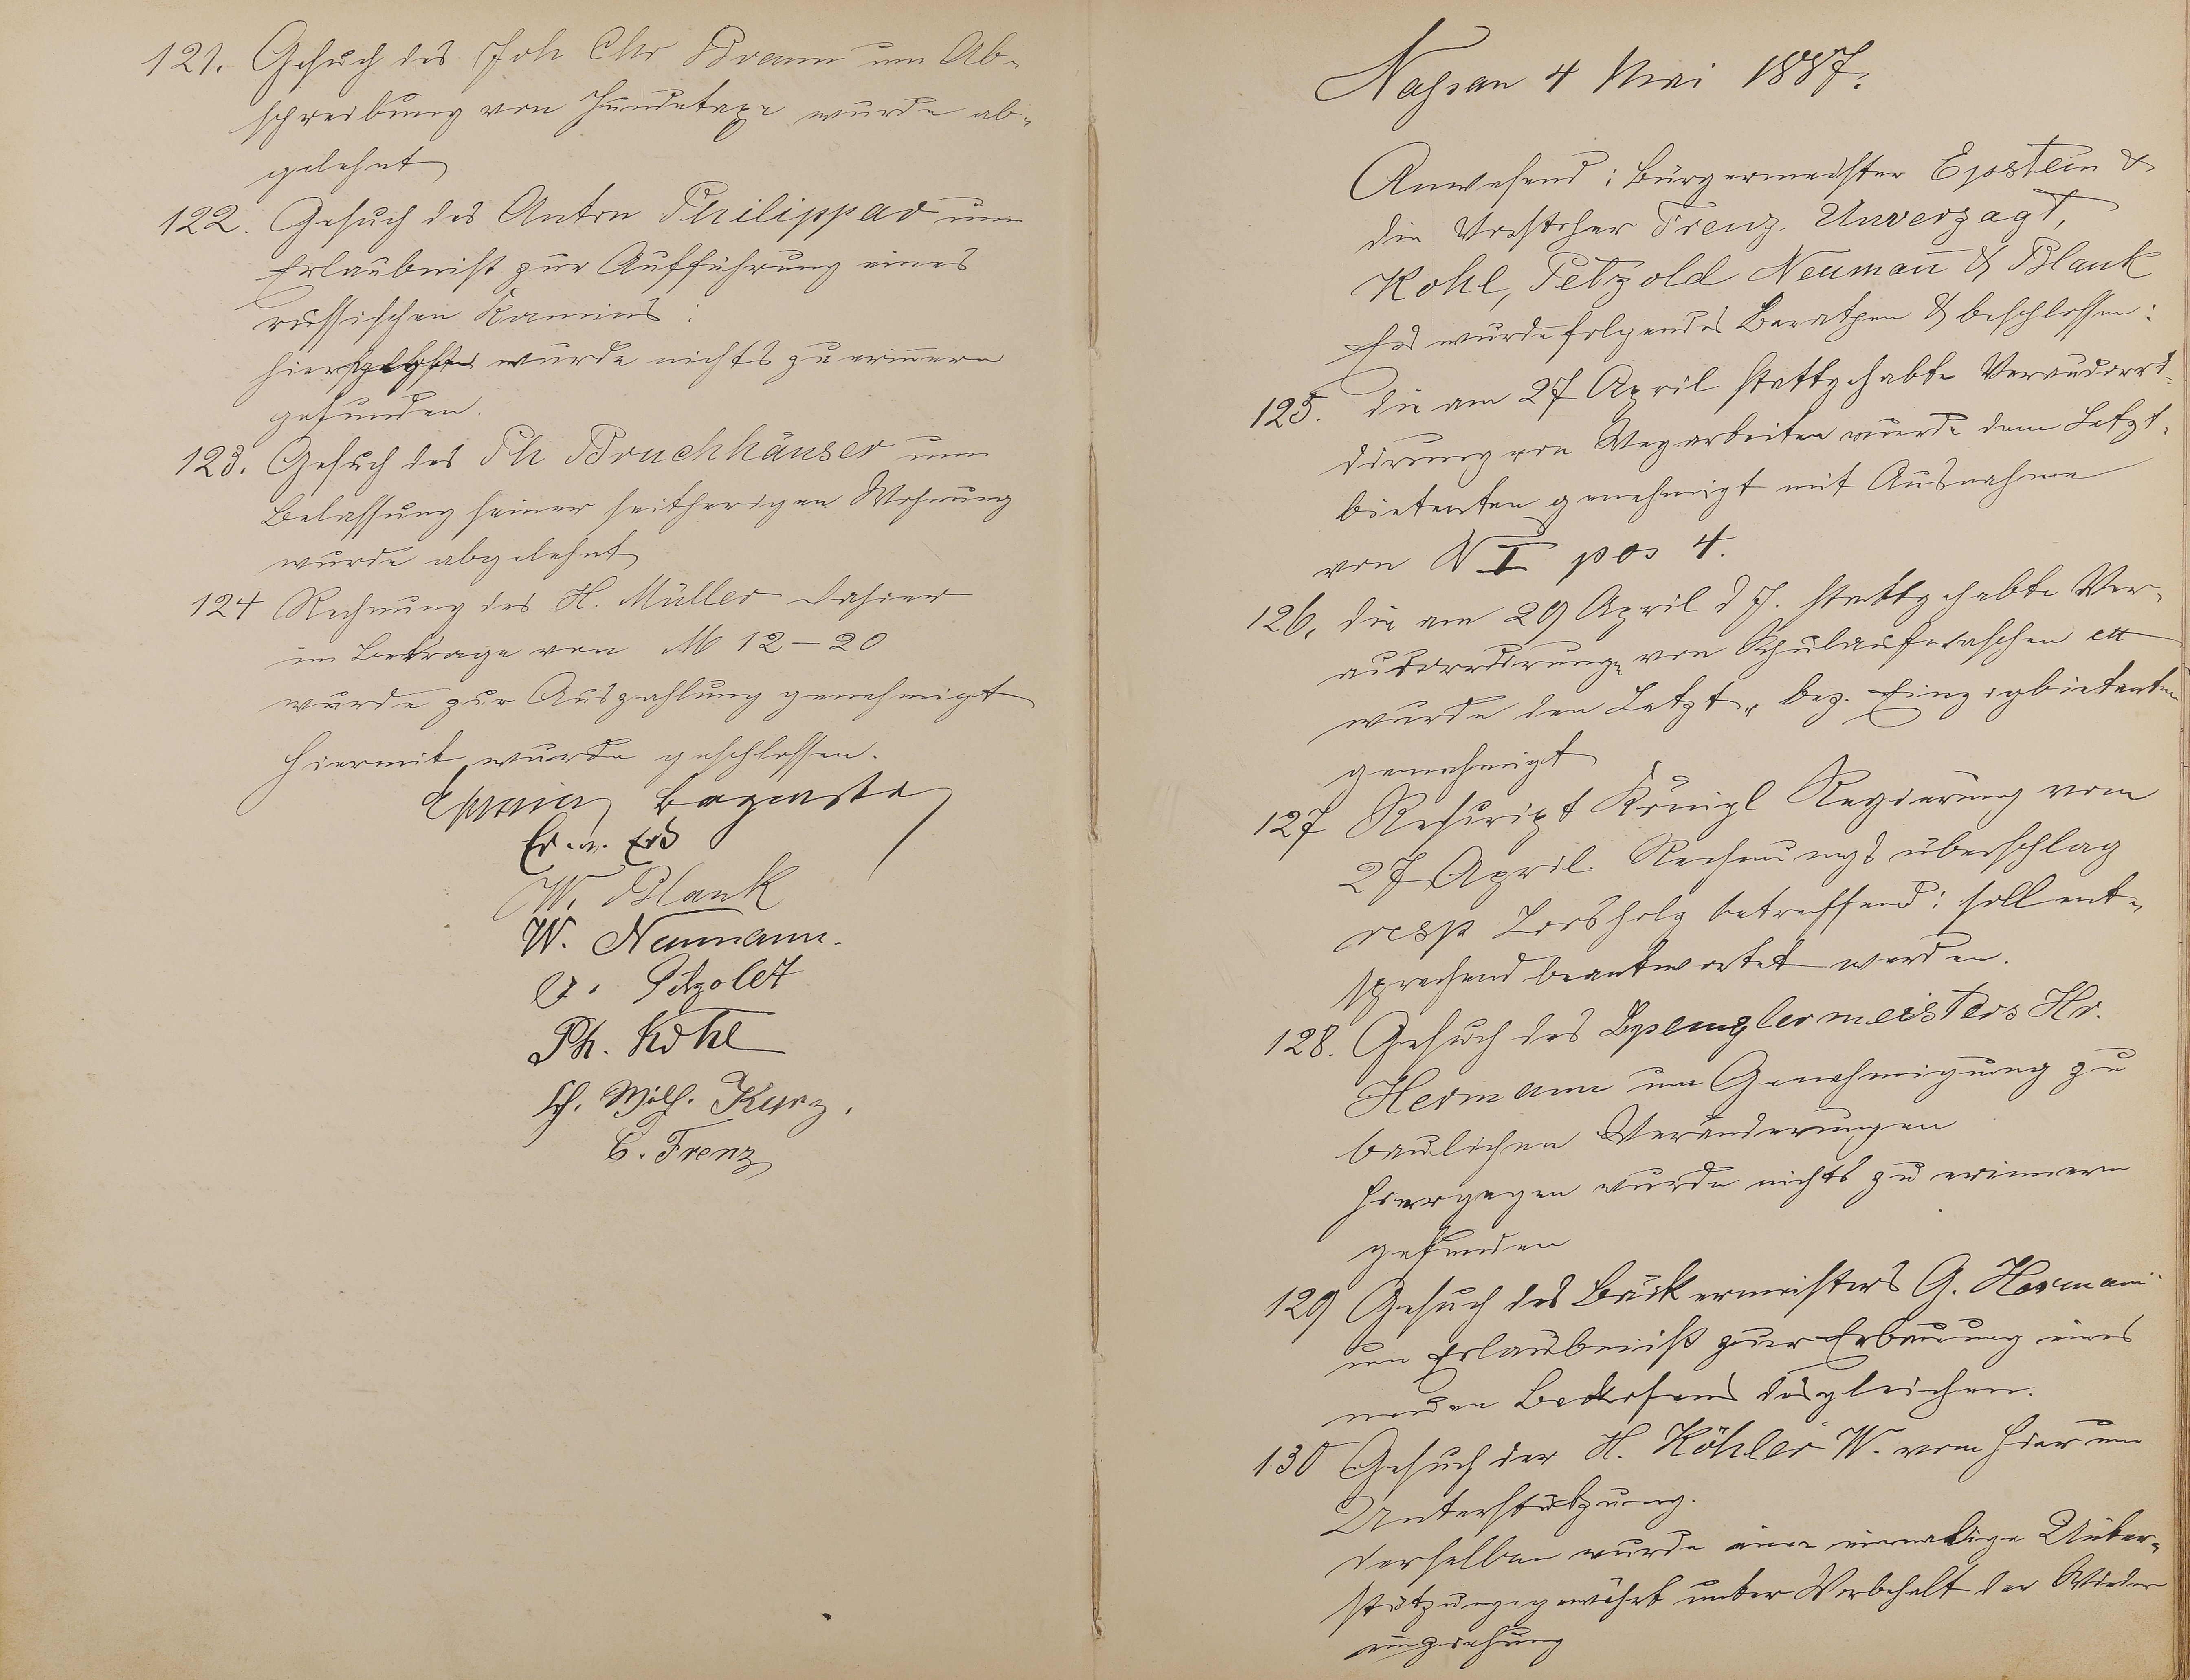 121. Gesuch des Joh Chr Braun um Ab-
schreibung von Hundetaxe wurde ab-
gelehnt
122. Gesuch des Anton Philippar um
Erlaubniß zur Aufführung eines
russischen Kamins:
hier wurde nichts zu erinnern
gefunden.
123. Gesuch des Ph Bruchhäuser um
Belassung seiner seitherigen Wohnung
wurde abgelehnt
124 Rechnung des H. Müller dahier
im Betrage von M 12-20
wurde zur Auszahlung genehmigt
Hiermit wurde geschlossen.
W. Blank
W. Neumann.
Ph. Kohl
Wilh. Kurz.
C. Frenz
Nassau 4 Mai 1887.
Anwesend: Bürgermeister Epstein &
die Vorsteher Trenz. Unverzagt,
Kohl, Petzold Neuman̄ & Blank
Es wurde folgendes Berathen & beschlossen:
125. die am 27 April stattgehabte Veraccord-
dirung von Wegarbeiten wurde dem Letzt-
bietenten genehmigt mit Ausnahme
von N I pos 4.
126. die am 29 April d J. stattgehabte Ver-
accordirung von Schulaufwaschen ett
wurde den Letzt- bez. Einzigbietenten
genehmigt
127 Rescript Königl Regierung vom
27 April Rechnungsüberschlag
resp Loosholz betreffend: soll ent-
sprechend beantwortet werden.
128. Gesuch des Spenglermeisters Hr.
Hermann um Genehmigung zu
baulichen Veränderungen
hiergegen wurde nichts zu erinnern
gefunden
129 Gesuch des Bäckermeisters G. Herman̄
um Erlaubniß zur Erbauung eines
neuen Backofens desgleichen.
130 Gesuch der H. Köhler W. von hier um
Unterstützung.
derselben wurde eine einmalige Unter-
stützung gewährt unter Vorbehalt der Wieder
einziehung